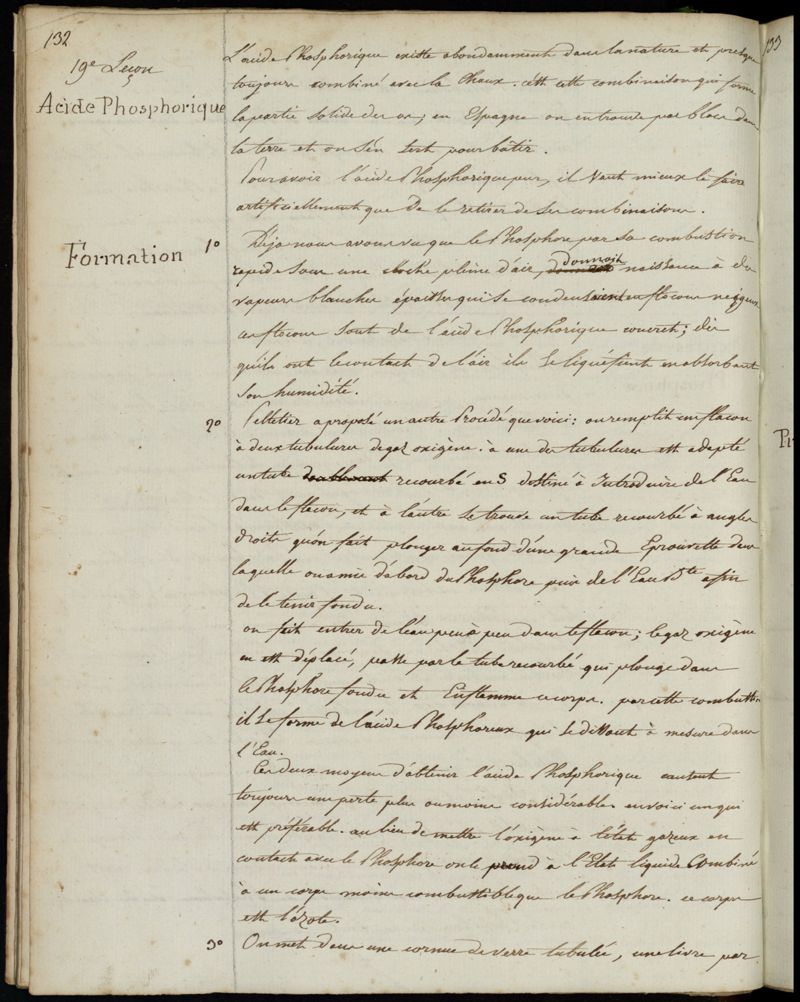 132
19e Leçon
Acide Phosphorique
L'acide Phosphorique existe abondamment dans la nature et presque
toujours combiné avec la Chaux. c'est cette combinaison qui forme
la partie solide des os; en Espagne on en trouve par blocs dans
la terre et on s'en sert pour bâtir.
Pour avoir l'acide Phosphorique pur, il Vaut mieux le faire
artificiellement que De le retirer de ses combinaisons.
Formation
1o Déja nous avons vu que le Phosphore par sa combustion
rapide sous une cloche pleine d'air, donnoit naissance à des
vapeurs blanches épaisses qui se condensaient en flocons neigeux
ces flocons sont de l'acide Phosphorique concret; dès
qu'ils ont le contact de l'air ils se liquéfient en absorbant
son humidité.
2o Pelletier a proposé un autre Procédé que voici: on remplit un flacon
à deux tubulures de gaz oxigène. à une des tubulures est adapté
un tube recourbé en S destiné à Introduire de l'Eau
dans le flacon, et à l'autre se trouve un tube recourbé à angles
droits qu'on fait plonger au fond d'une grande Eprouvette dans
laquelle on a mis d'abord du Phosphore puis de l'Eau Bte afin
de le tenir fondu.
on fait entrer de l'eau peu à peu dans le flacon; le gaz oxigène
en est déplacé, passe par le tube recourbé qui plonge dans
le Phosphore fondu et Enflamme ce corps. par cette combustion
il se forme de l'acide Phosphoreux qui se dissout à mesure dans
l'Eau.
Ces deux moyens d'obtenir l'acide Phosphorique causent
toujours une perte plus ou moins considérable. en voici un qui
est préférable. au lieu de mettre l'oxigène à l'état gazeux en
contact avec le Phosphore on le prend à l'Etat liquide Combiné
à un corps moins combustible que le Phosphore. ce corps
est l'azote.
3o On met dans une cornue de verre tubulée, une livre par
133